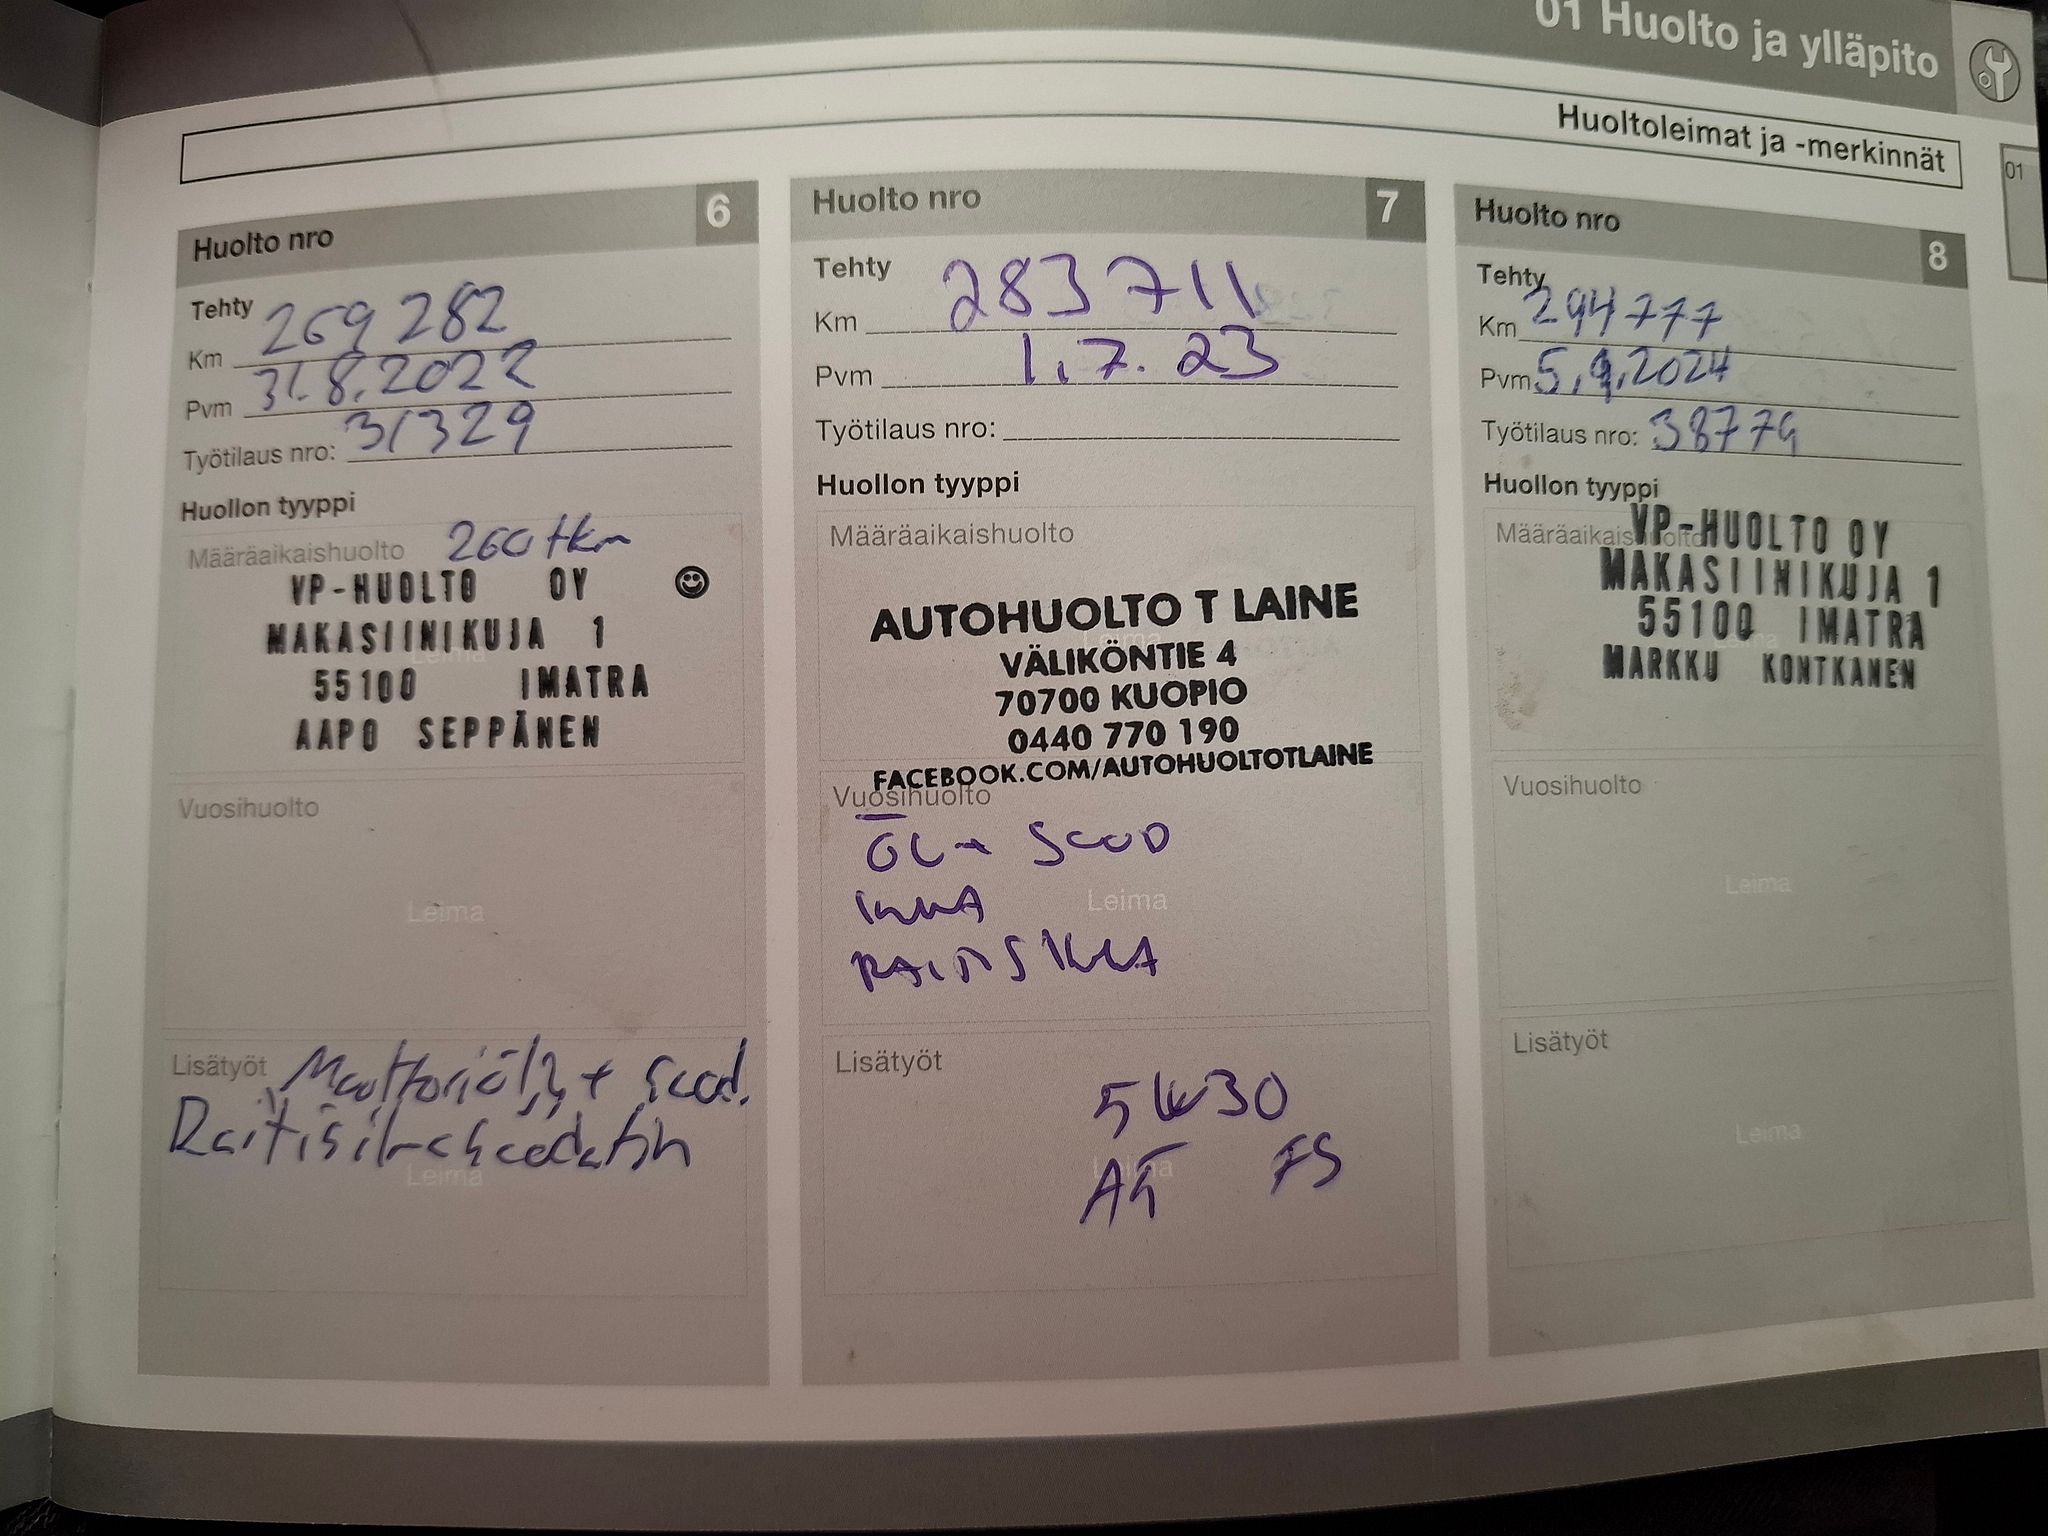 01 Huolto ja ylläpito
Huoltoleimat ja -merkinnät
01
Huolto nro 6
Tehty
Km 269 282
Pvm 31.8.2022
Työtilaus nro: 31329
Huollon tyyppi
Määräaikaishuolto 260 tkm
VP-HUOLTO OY
MAKASIINIKUJA 1
Leima
55100 IMATRA
AAPO SEPPÄNEN
Vuosihuolto
Leima
Lisätyöt Moottoriöljy + suod.
Raitisilmasuodatin
Leima
Huolto nro 7
Tehty
Km 283 711
Pvm 1.7.23
Työtilaus nro:
Huollon tyyppi
Määräaikaishuolto
AUTOHUOLTO T LAINE
Leima
VÄLIKÖNTIE 4
70700 KUOPIO
0440 770 190
FACEBOOK.COM/AUTOHUOLTOTLAINE
Vuosihuolto
ÖL+ SUOD
Leima
Lisätyöt
5W30
Leima
Huolto nro 8
Tehty
Km 294 777
Pvm 5.9.2024
Työtilaus nro: 38779
Huollon tyyppi
Määräaikaishuolto
VP-HUOLTO OY
MAKASIINIKUJA 1
55100 IMATRA
Leima
MARKKU KONTKANEN
Vuosihuolto
Leima
Lisätyöt
Leima